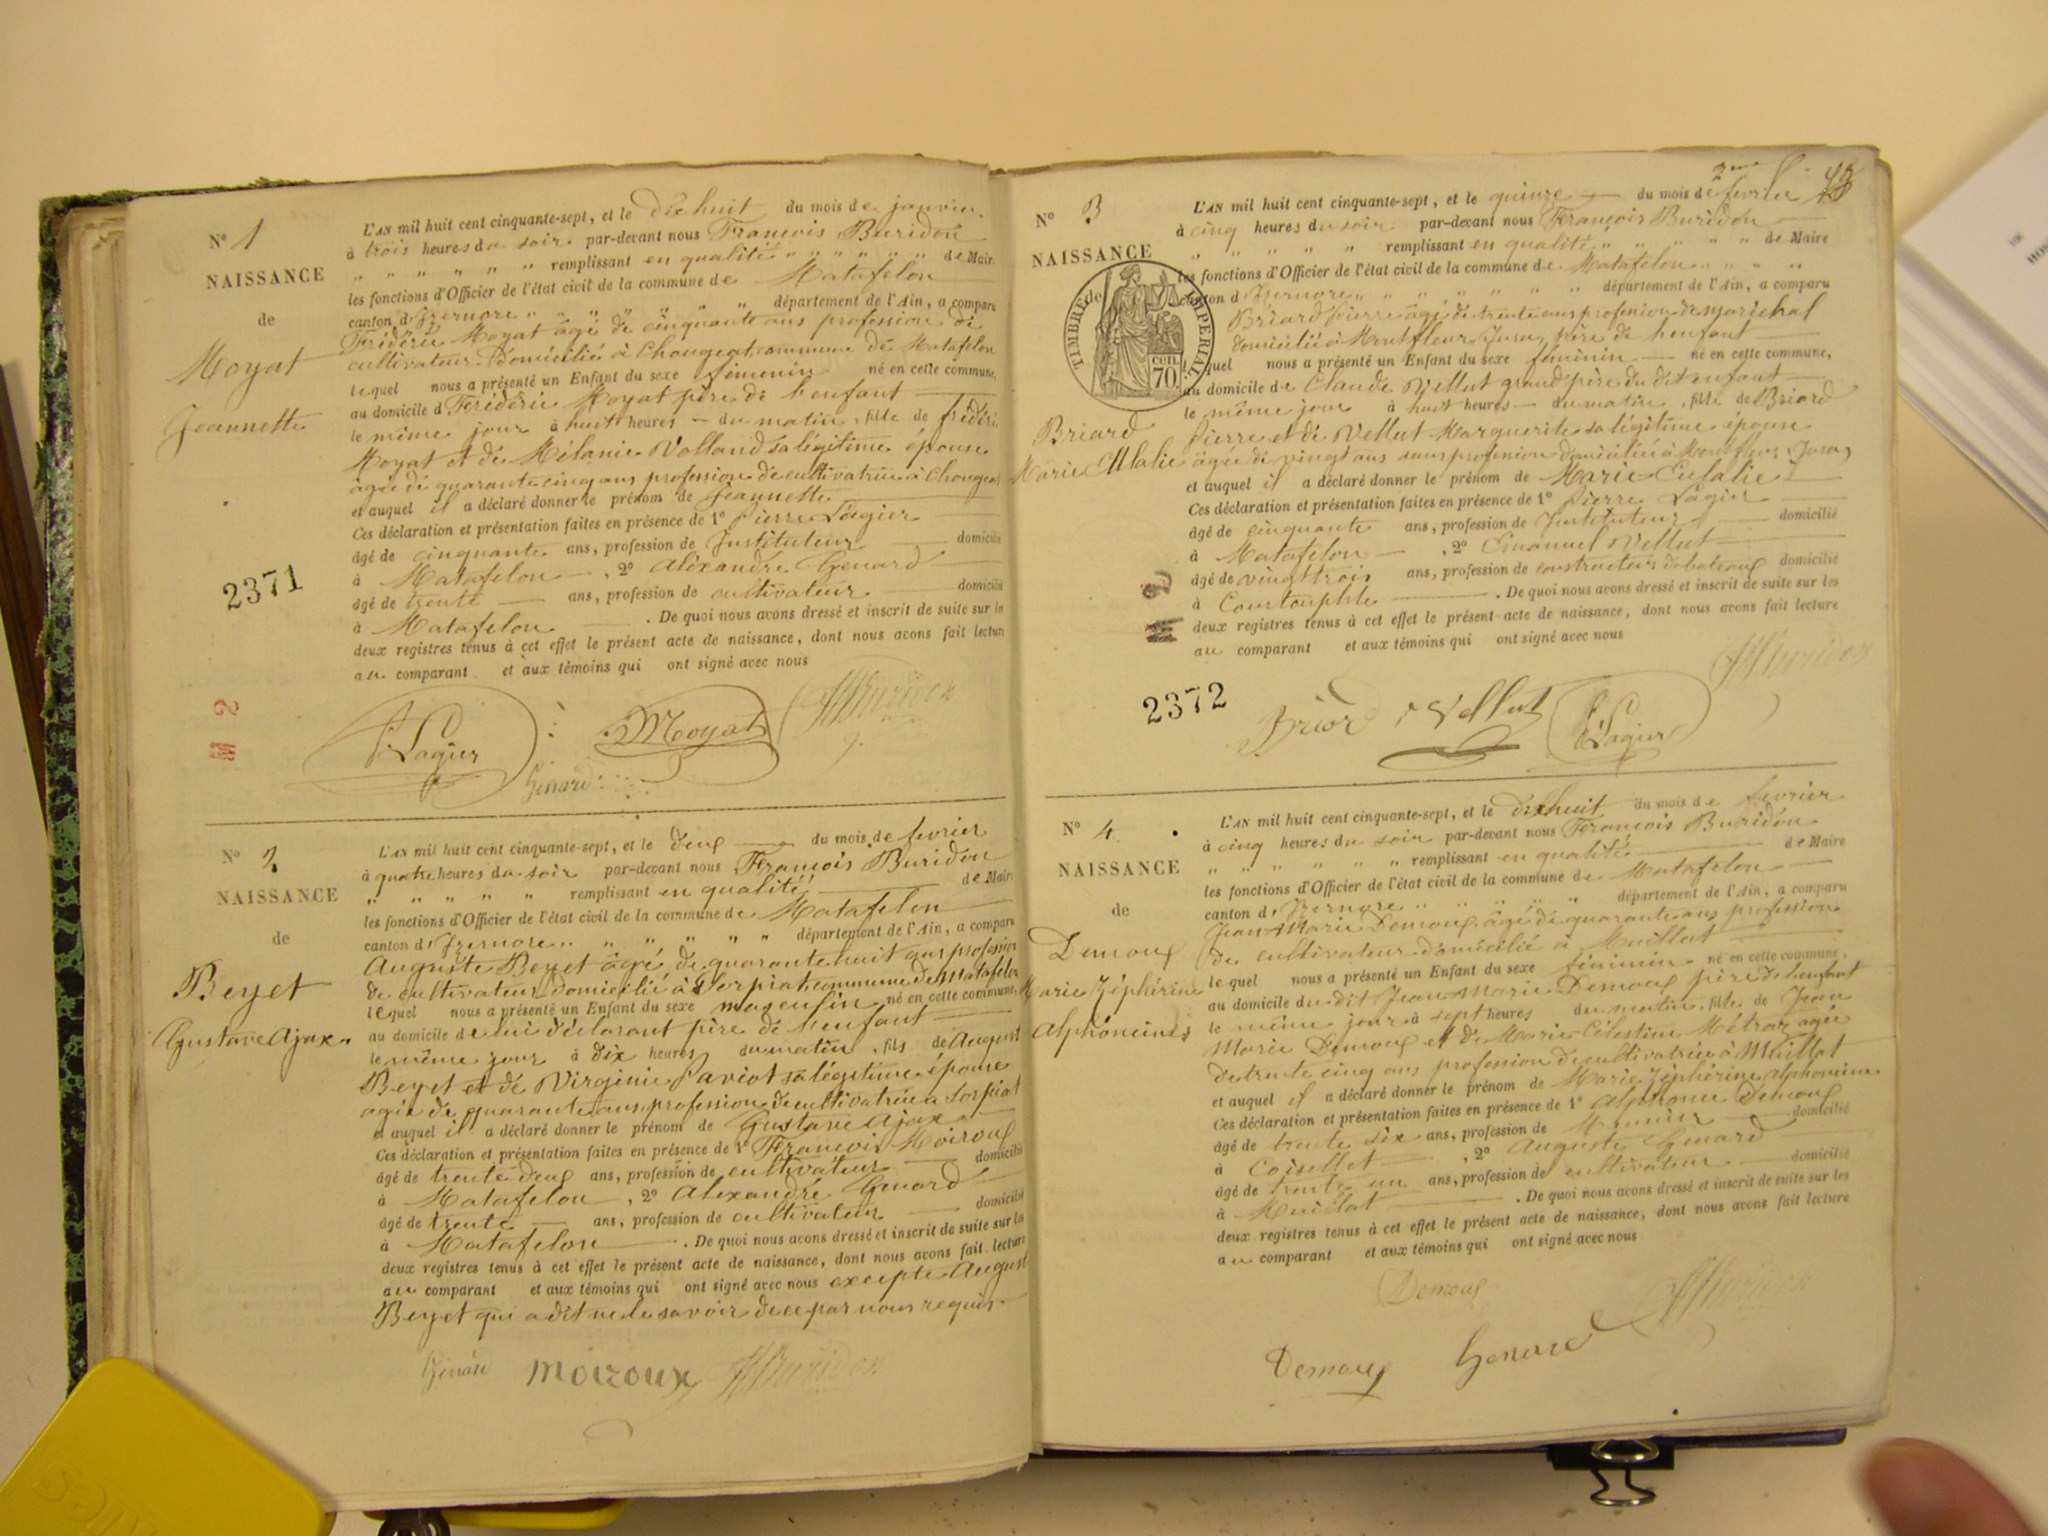 N° 1
NAISSANCE
de
Moyat
Jeannette
2371
L'AN mil huit cent cinquante-sept, et le dix huit du mois de janvier
à trois heures du soir par-devant nous François Buridon
" " " " " " remplissant en qualité " " " " " " de Maire
les fonctions d'Officier de l'état civil de la commune de Matafelon
canton d'Izernore " " " " " " département de l'Ain, a comparu
Frédéric Moyat âgé de cinquante ans profession de
cultivateur domicilié à Chougeat commune de Matafelon
lequel nous a présenté un Enfant du sexe féminin né en cette commune,
au domicile d Frédéric Moyat père de l'enfant
le même jour à huit heures du matin, fille de Frédéric
Moyat et de Mélanie Volland sa légitime épouse
âgée de quarante cinq ans profession de cultivatrice à Chougeat
et auquel il a déclaré donner le prénom de Jeannette
Ces déclaration et présentation faites en présence de 1° Pierre Lagier
âgé de cinquante ans, profession de Instituteur domicilié
à Matafelon, 2° Alexandre Genard
âgé de trente ans, profession de cultivateur domicilié
à Matafelon. De quoi nous avons dressé et inscrit de suite sur les
deux registres tenus à cet effet le présent acte de naissance, dont nous avons fait lecture
au comparant et aux témoins qui ont signé avec nous
P Lagier Moyat Buridon
Genard
N° 2
NAISSANCE
de
Beyet
Gustave Ajax
L'AN mil huit cent cinquante-sept, et le deux du mois de fevrier
à quatre heures du soir par-devant nous François Buridon
" " " " " remplissant en qualité de Maire
les fonctions d'Officier de l'état civil de la commune de Matafelon
canton d'Izernore " " " " " " département de l'Ain, a comparu
Auguste Beyet âgé de quarante huit ans profession
de cultivateur domicilié à Sorpiat commune de Matafelon
lequel nous a présenté un Enfant du sexe masculin né en cette commune,
au domicile de lui déclarant père de l'enfant
le même jour à dix heures du matin, fils de August
Beyet et de Virginie Paviot sa légitime épouse
agée de quarante ans profession de cultivatrice à Sorpiat
et auquel il a déclaré donner le prénom de Gustave Ajax
Ces déclaration et présentation faites en présence de 1° François Moiroux
âgé de trente deux ans, profession de cultivateur domicilié
à Matafelon, 2° Alexandre Genard
âgé de trente ans, profession de cultivateur domicilié
à Matafelon. De quoi nous avons dressé et inscrit de suite sur les
deux registres tenus à cet effet le présent acte de naissance, dont nous avons fait lecture
au comparant et aux témoins qui ont signé avec nous excepte August
Beyet qui a dit ne le savoir de ce par nous requis.
Genard Moiroux Buridon
2me f 43
N° 3
NAISSANCE
de
TIMBRE IMPERIAL
70 cen
Briard
Marie Eulalie
2372
L'AN mil huit cent cinquante-sept, et le quinze du mois de fevrier
à cinq heures du soir par-devant nous François Buridon
" " " " remplissant en qualité " " " " " de Maire
les fonctions d'Officier de l'état civil de la commune de Matafelon " " " "
canton d'Izernore " " " " " " département de l'Ain, a comparu
Briard Pierre âgé de trente ans profession de marichal
domicilié à Montfleur Jura, père de l'enfant
lequel nous a présenté un Enfant du sexe féminin né en cette commune,
au domicile de Claude Vellut grand père du dit enfant
le même jour à huit heures du matin, fille de Briard
Pierre et de Vellut Marguerite sa légitime épouse
âgée de vingt ans sans profession domiciliée à Montfleur Jura
et auquel il a déclaré donner le prénom de Marie Eulalie
Ces déclaration et présentation faites en présence de 1° Pierre Lagier
âgé de cinquante ans, profession de Instituteur domicilié
à Matafelon, 2° Emanuel Vellut
âgé de vingt trois ans, profession de constructeur de bateaux domicilié
à Courtouphle. De quoi nous avons dressé et inscrit de suite sur les
deux registres tenus à cet effet le présent acte de naissance, dont nous avons fait lecture
au comparant et aux témoins qui ont signé avec nous
Buridon
Briard Vellut P Lagier
N° 4
NAISSANCE
de
Demoux
Marie Zéphérine
Alphoncine
L'AN mil huit cent cinquante-sept, et le dix huit du mois de fevrier
à cinq heures du soir par-devant nous François Buridon
" " " " " " remplissant en qualité de Maire
les fonctions d'Officier de l'état civil de la commune de Matafelon
canton d'Izernore " " " " " département de l'Ain, a comparu
Jean Marie Demoux âgé de quarante ans profession
de cultivateur domicilié à Muillat
lequel nous a présenté un Enfant du sexe féminin né en cette commune,
au domicile du dit Jean Marie Demoux père de l'enfant
le même jour à sept heures du matin, fille de Jean
Marie Demoux et de Marie Célestine Métraz agée
de trente cinq ans profession de cultivatrice à Muillat
et auquel il a déclaré donner le prénom de Marie Zéphérine Alphoncine
Ces déclaration et présentation faites en présence de 1° Alphonse Demoux
âgé de trente six ans, profession de Meunier domicilié
à Coisellet, 2° Auguste Genard
âgé de trente un ans, profession de cultivateur domicilié
à Muillat. De quoi nous avons dressé et inscrit de suite sur les
deux registres tenus à cet effet le présent acte de naissance, dont nous avons fait lecture
au comparant et aux témoins qui ont signé avec nous
Demoux Buridon
Demoux Genard